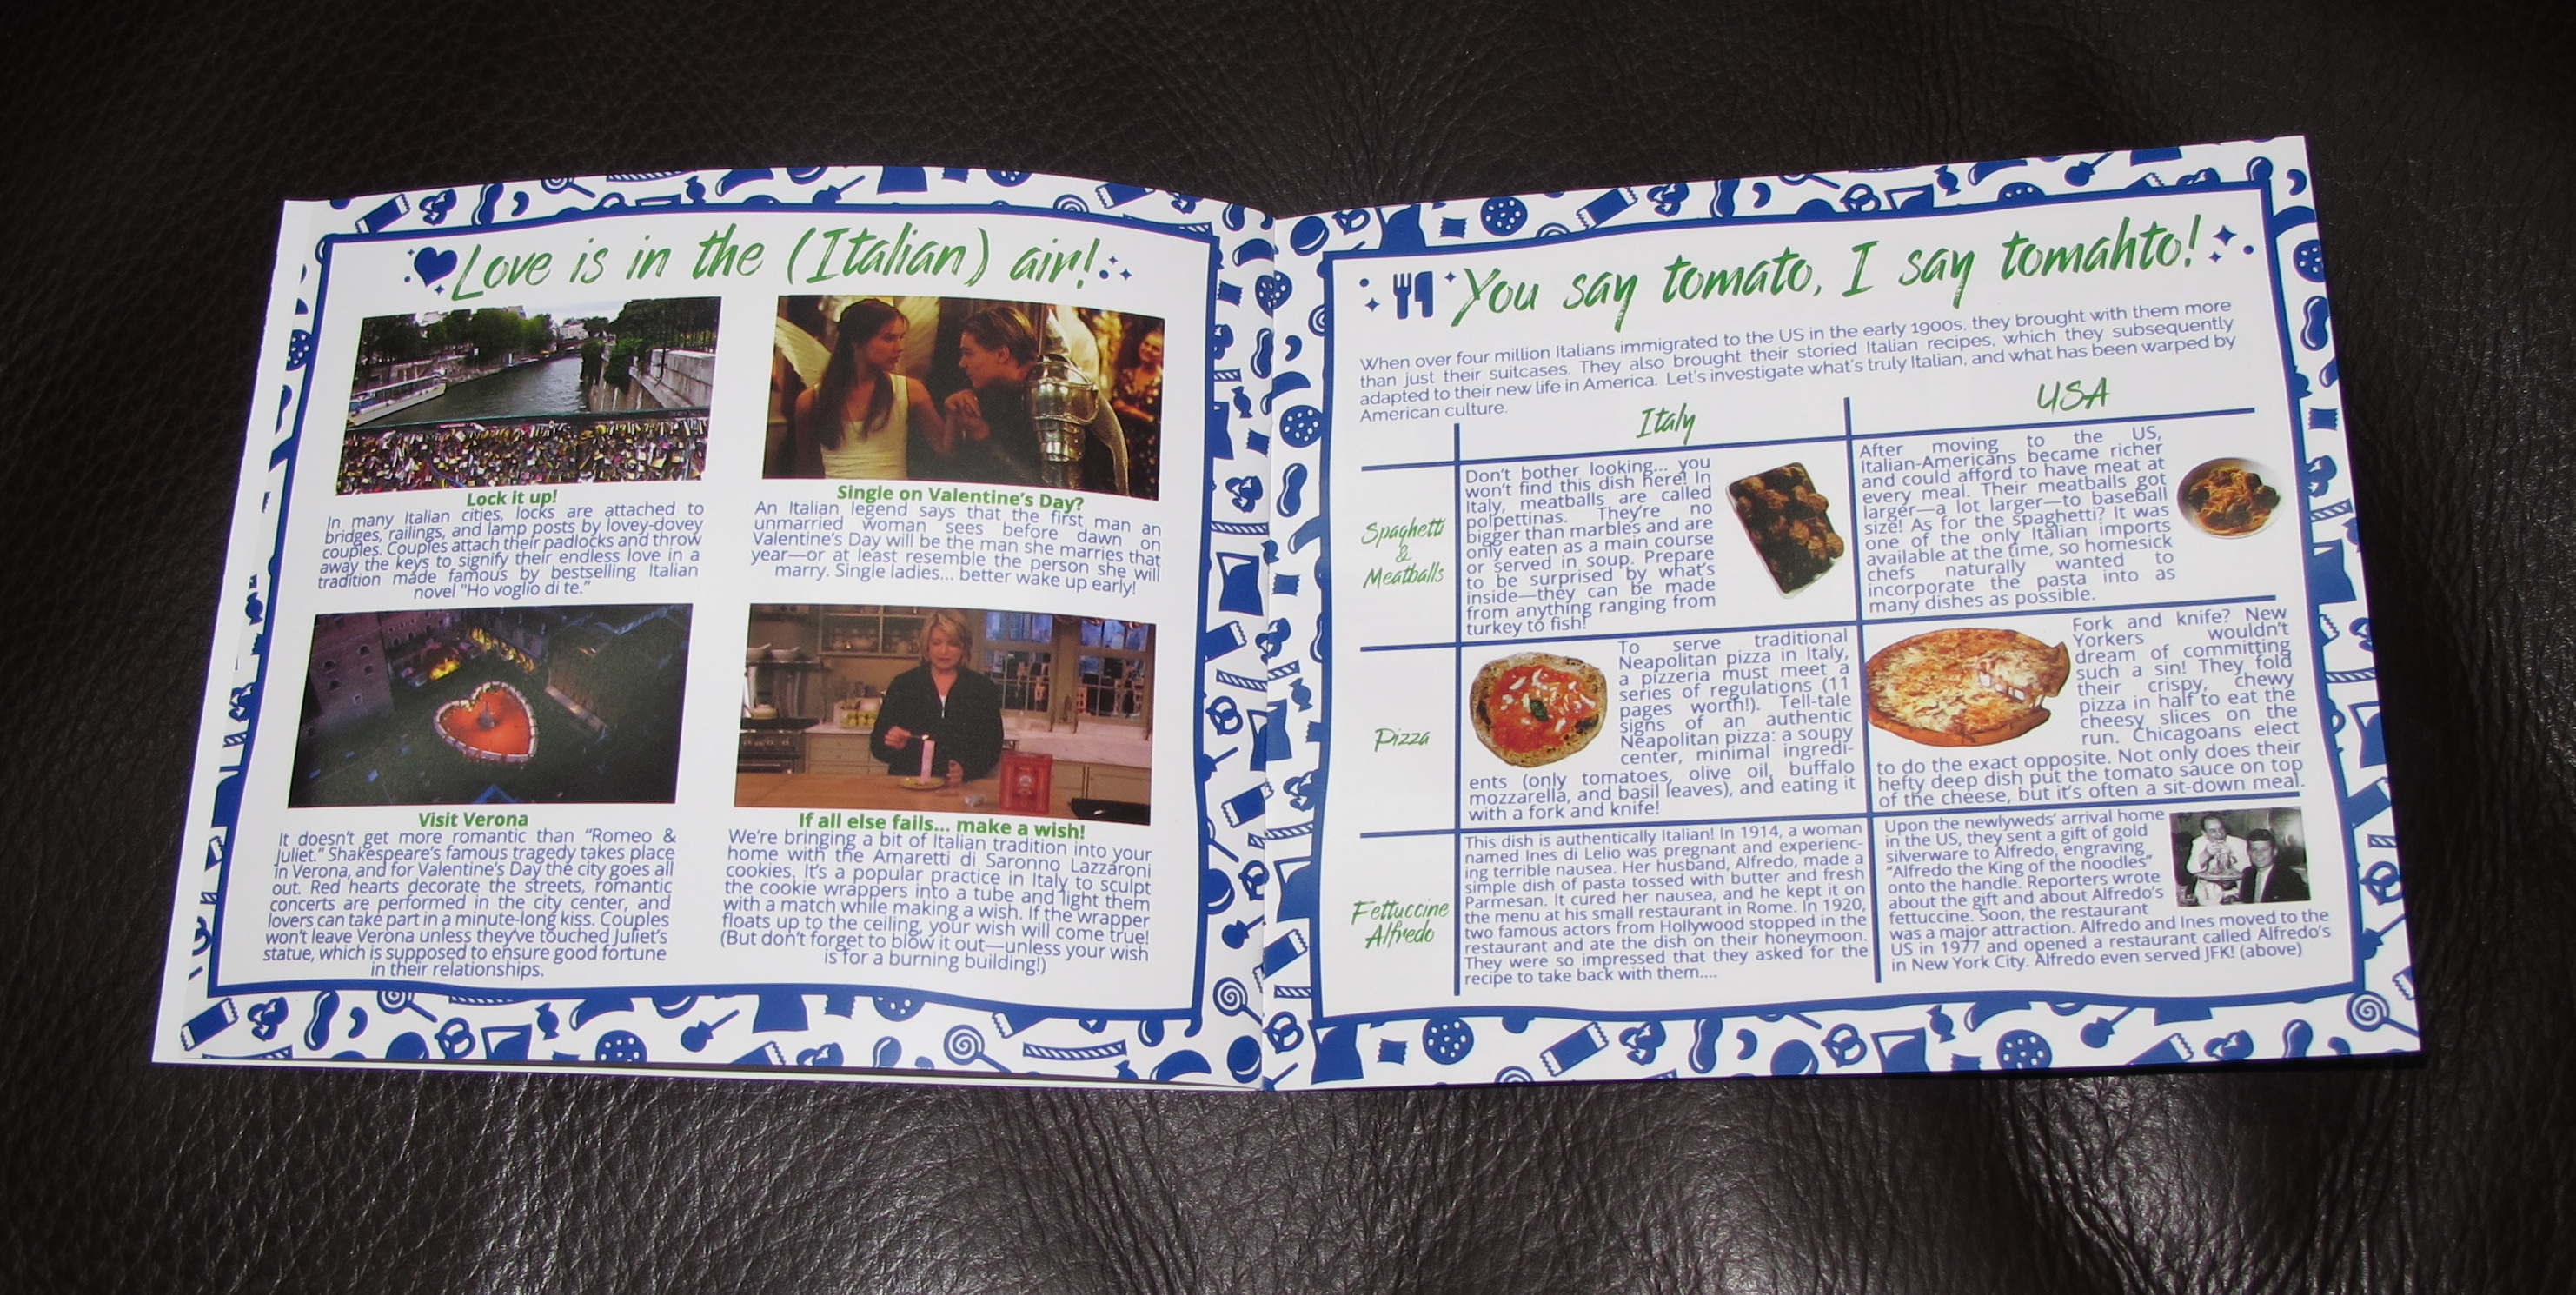 Love is in the (Italian) air!
Lock it up!
In many Italian cities, locks are attached to
bridges, railings, and lamp posts by lovey-dovey
couples. Couples attach their padlocks and throw
away the keys to signify their endless love in a
tradition made famous by bestselling Italian
novel "Ho voglio di te."
Single on Valentine's Day?
An Italian legend says that the first man an
unmarried woman sees before dawn on
Valentine's Day will be the man she marries that
year—or at least resemble the person she will
marry. Single ladies... better wake up early!
Visit Verona
It doesn't get more romantic than "Romeo &
Juliet." Shakespeare's famous tragedy takes place
in Verona, and for Valentine's Day the city goes all
out. Red hearts decorate the streets, romantic
concerts are performed in the city center, and
lovers can take part in a minute-long kiss. Couples
won't leave Verona unless they've touched Juliet's
statue, which is supposed to ensure good fortune
in their relationships.
If all else fails... make a wish!
We're bringing a bit of Italian tradition into your
home with the Amaretti di Saronno Lazzaroni
cookies. It's a popular practice in Italy to sculpt
the cookie wrappers into a tube and light them
with a match while making a wish. If the wrapper
floats up to the ceiling, your wish will come true!
(But don't forget to blow it out—unless your wish
is for a burning building!)
You say tomato, I say tomahto!
When over four million Italians immigrated to the US in the early 1900s, they brought with them more
than just their suitcases. They also brought their storied Italian recipes, which they subsequently
adapted to their new life in America. Let's investigate what's truly Italian, and what has been warped by
American culture.
Italy
USA
Spaghetti
&
Meatballs
Don't bother looking... you
won't find this dish here! In
Italy, meatballs are called
polpettinas. They're no
bigger than marbles and are
only eaten as a main course
or served in soup. Prepare
to be surprised by what's
inside—they can be made
from anything ranging from
turkey to fish!
After moving to the US,
Italian-Americans became richer
and could afford to have meat at
every meal. Their meatballs got
larger—a lot larger—to baseball
size! As for the spaghetti? It was
one of the only Italian imports
available at the time, so homesick
chefs naturally wanted to
incorporate the pasta into as
many dishes as possible.
Pizza
To serve traditional
Neapolitan pizza in Italy,
a pizzeria must meet a
series of regulations (11
pages worth!). Tell-tale
signs of an authentic
Neapolitan pizza: a soupy
center, minimal ingredi-
ents (only tomatoes, olive oil, buffalo
mozzarella, and basil leaves), and eating it
with a fork and knife!
Fork and knife? New
Yorkers wouldn't
dream of committing
such a sin! They fold
their crispy, chewy
pizza in half to eat the
cheesy slices on the
run. Chicagoans elect
to do the exact opposite. Not only does their
hefty deep dish put the tomato sauce on top
of the cheese, but it's often a sit-down meal.
Fettuccine
Alfredo
This dish is authentically Italian! In 1914, a woman
named Ines di Lelio was pregnant and experienc-
ing terrible nausea. Her husband, Alfredo, made a
simple dish of pasta tossed with butter and fresh
Parmesan. It cured her nausea, and he kept it on
the menu at his small restaurant in Rome. In 1920,
two famous actors from Hollywood stopped in the
restaurant and ate the dish on their honeymoon.
They were so impressed that they asked for the
recipe to take back with them....
Upon the newlyweds' arrival home
in the US, they sent a gift of gold
silverware to Alfredo, engraving
"Alfredo the King of the noodles"
onto the handle. Reporters wrote
about the gift and about Alfredo's
fettuccine. Soon, the restaurant
was a major attraction. Alfredo and Ines moved to the
US in 1977 and opened a restaurant called Alfredo's
in New York City. Alfredo even served JFK! (above)